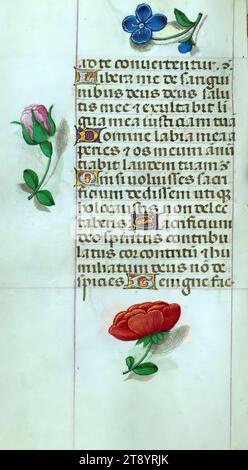 ad te convertentur. &
Libera me de sangui
nibus deus deus salu
tis mee & exultabit li
gua mea iusticiam tuā
Domine labia mea a
peries & os meum annū
ciabit laudem tuam &
Qm si voluisses sacri
ficium dedissem utiq
holocaustis non delec
taberis Sacrificium
deo spiritus contribu
latus cor contritū & hu
miliatum deus nō de
spicies Benigne fac
alamy
Image ID: 2T8YRJK
www.alamy.com